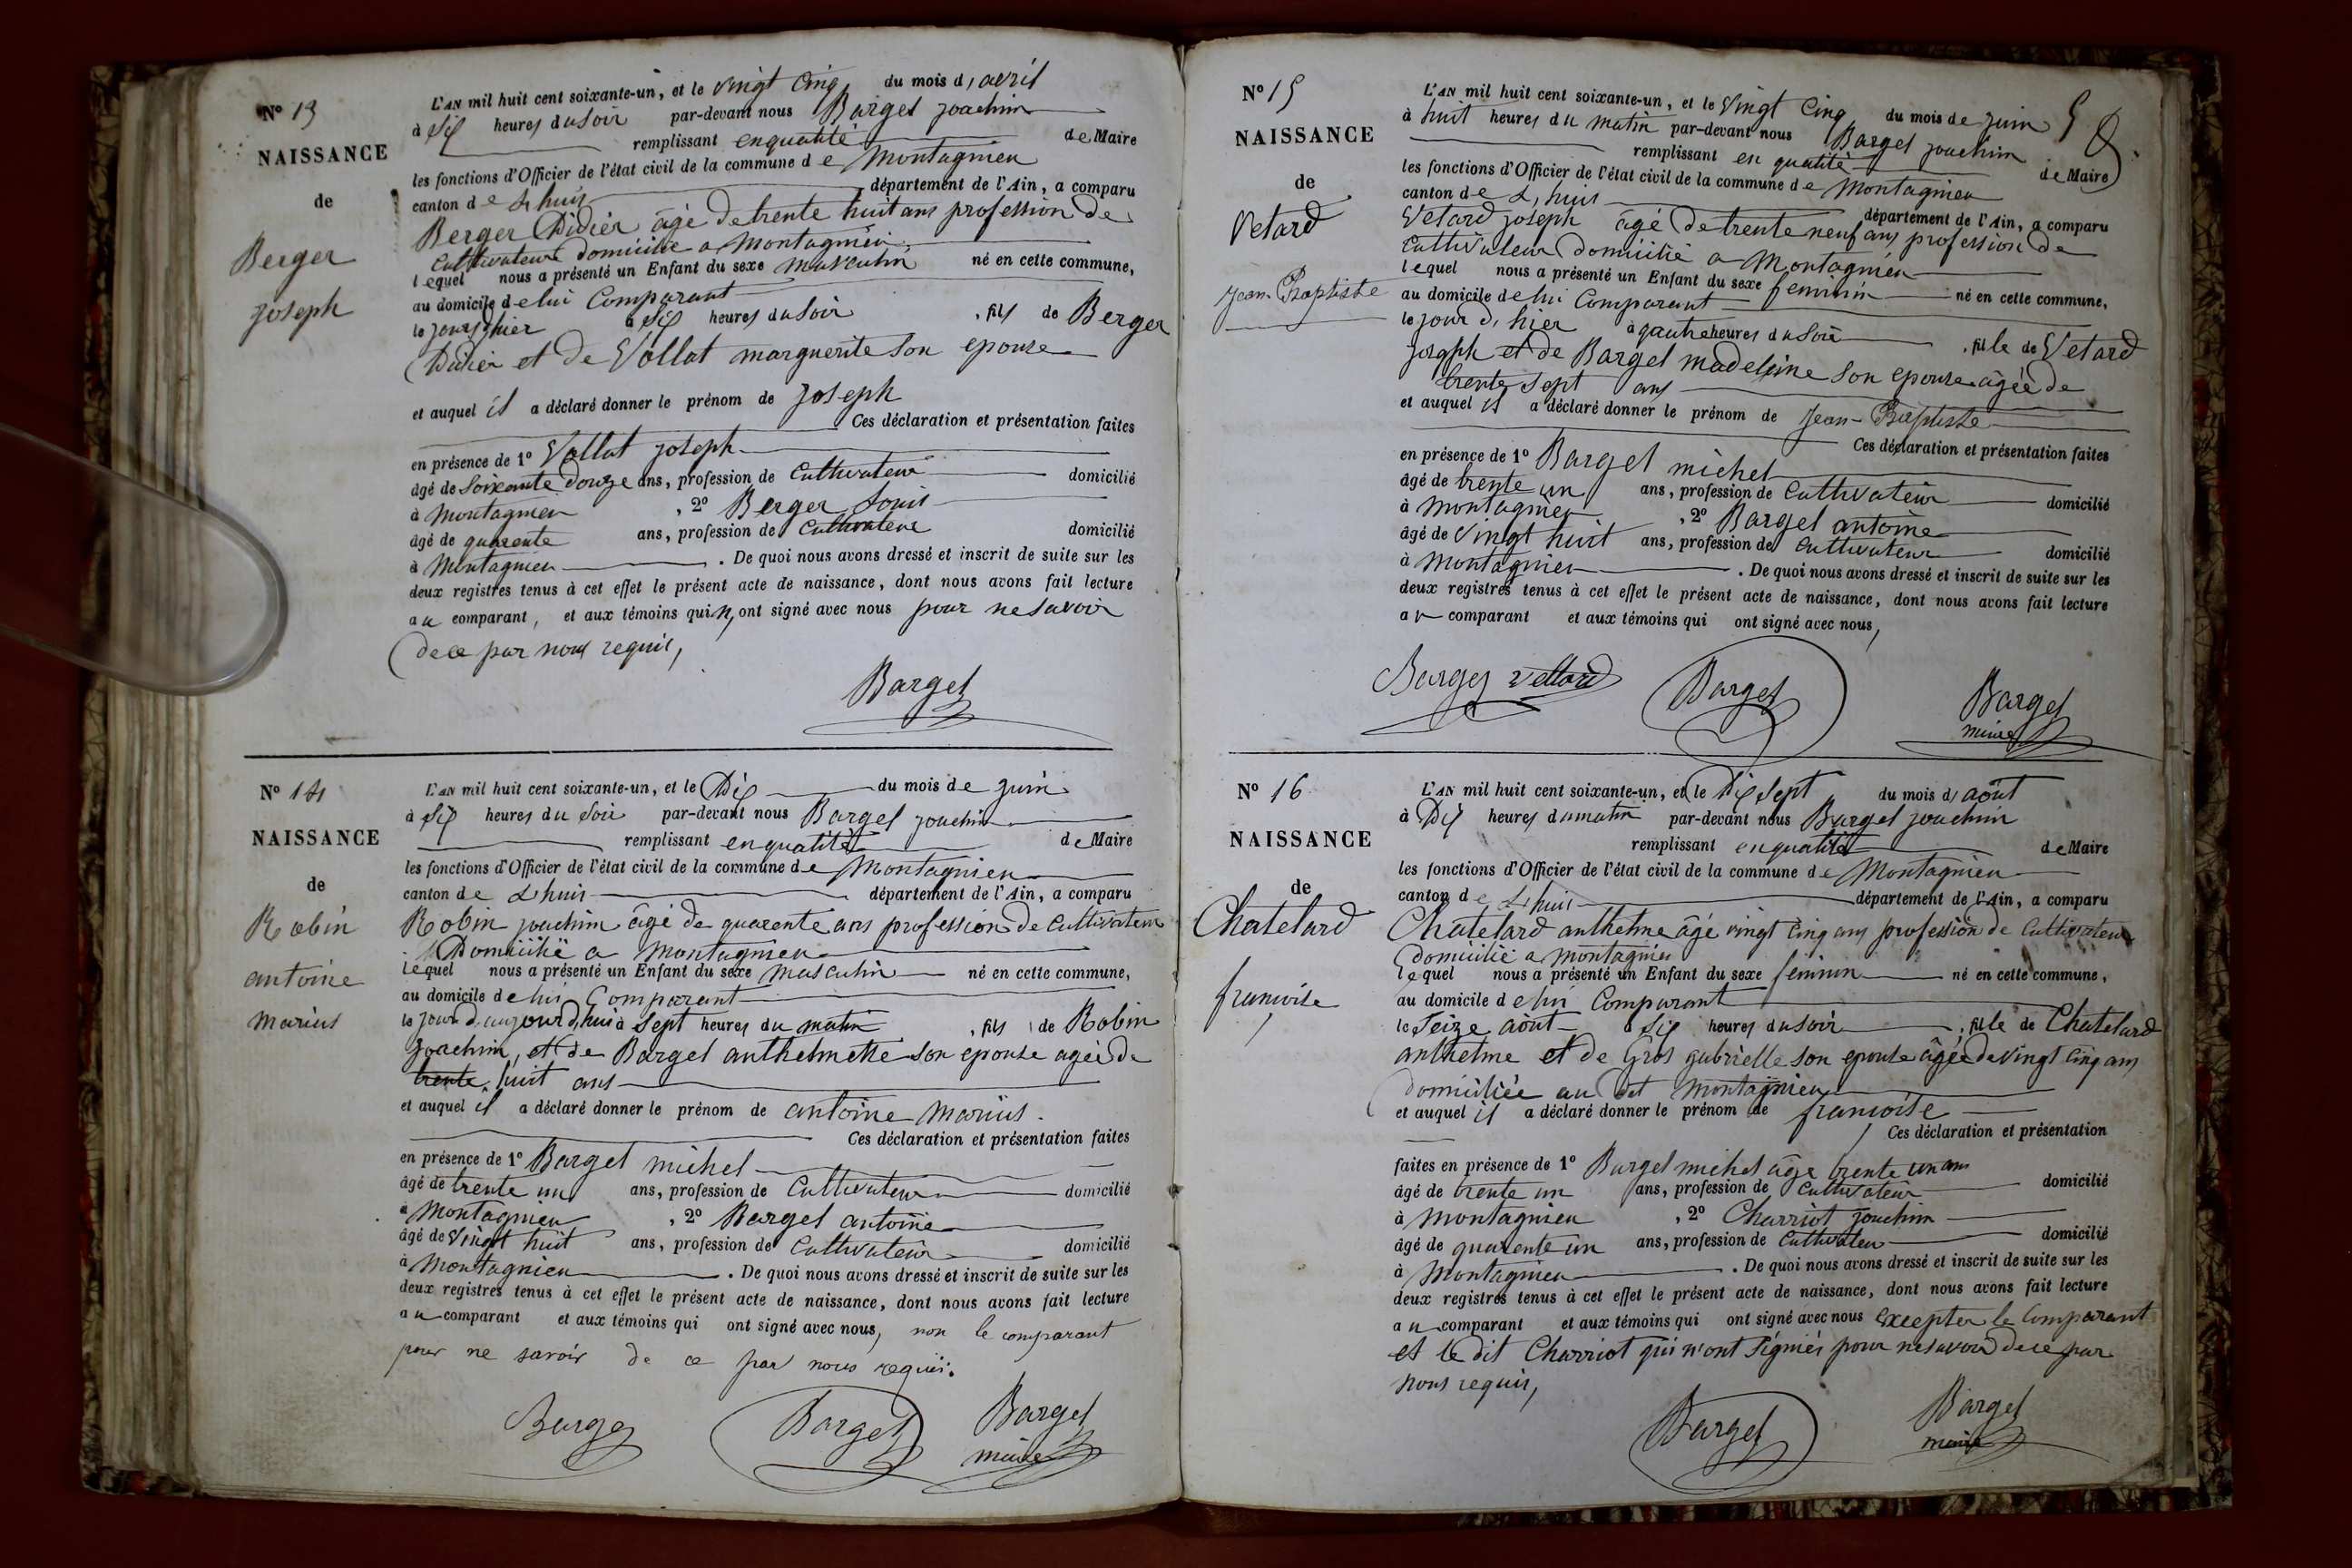 N° 13
NAISSANCE
de
Berger
joseph
L'AN mil huit cent soixante-un, et le vingt cinq du mois d, avril
à six heures du soir par-devant nous Barget joachim
remplissant en qualité de Maire
les fonctions d'Officier de l'état civil de la commune de Montagnieu
canton de Lhuis département de l'Ain, a comparu
Berger Didier âgé de trente huit ans profession de
cultivateur domicilié a Montagnieu
lequel nous a présenté un Enfant du sexe masculin né en cette commune,
au domicile de lui Comparant
le jour d'hier à six heures du soir, fils de Berger
Didier et de Vollat marguerite son epouse
et auquel il a déclaré donner le prénom de joseph
Ces déclaration et présentation faites
en présence de 1° Vollat joseph
âgé de soixante douze ans, profession de Cultivateur domicilié
à montagnieu, 2° Berger Louis
âgé de quarente ans, profession de Cultivateur domicilié
à Montagnieu. De quoi nous avons dressé et inscrit de suite sur les
deux registres tenus à cet effet le présent acte de naissance, dont nous avons fait lecture
au comparant, et aux témoins qui n, ont signé avec nous pour ne savoir
de ce par nous requis,
Barget
N° 14
NAISSANCE
de
Robin
antoine
marius
L'AN mil huit cent soixante-un, et le Dix du mois de juin
à six heures du soir par-devant nous Barget joachim
remplissant en qualité de Maire
les fonctions d'Officier de l'état civil de la commune de Montagnieu
canton de Lhuis département de l'Ain, a comparu
Robin joachim âgé de quarente ans profession de cultivateur
Domicilié a Montagnieu
lequel nous a présenté un Enfant du sexe masculin né en cette commune,
au domicile de lui Comparant
le jour d, aujourd'hui à sept heures du matin, fils de Robin
joachim, et de Barget anthelmette son epouse agée de
trente huit ans
et auquel il a déclaré donner le prénom de antoine marius.
Ces déclaration et présentation faites
en présence de 1° Barget michel
âgé de trente un ans, profession de Cultivateur domicilié
à Montagnieu, 2° Barget antoine
âgé de vingt huit ans, profession de Cultivateur domicilié
à Montagnieu. De quoi nous avons dressé et inscrit de suite sur les
deux registres tenus à cet effet le présent acte de naissance, dont nous avons fait lecture
au comparant et aux témoins qui ont signé avec nous, non le comparant
pour ne savoir de ce par nous requis.
Barget Barget Barget
maire
N° 15
NAISSANCE
de
Vetard
Jean-Baptiste
5
L'AN mil huit cent soixante-un, et le Vingt Cinq du mois de juin
à huit heures du matin par-devant nous Barget joachim
remplissant en qualité de Maire
les fonctions d'Officier de l'état civil de la commune de Montagnieu
canton de L,huis département de l'Ain, a comparu
Vetard joseph âgé de trente neuf ans profession de
Cultivateur Domicilié a Montagnieu
lequel nous a présenté un Enfant du sexe feminin né en cette commune,
au domicile de lui Comparant
le jour d, hier à quatre heures du soir, fille de Vetard
joseph et de Barget madeleine son epouse âgée de
trente sept ans
et auquel il a déclaré donner le prénom de Jean-Baptiste
Ces déclaration et présentation faites
en présence de 1° Barget michel
âgé de trente un ans, profession de Cultivateur domicilié
à Montagnieu, 2° Barget antoine
âgé de vingt huit ans, profession de Cultivateur domicilié
à Montagnieu. De quoi nous avons dressé et inscrit de suite sur les
deux registres tenus à cet effet le présent acte de naissance, dont nous avons fait lecture
au comparant et aux témoins qui ont signé avec nous,
Barget vettard Barget Barget
maire
N° 16
NAISSANCE
de
Chatelard
francoise
L'AN mil huit cent soixante-un, et le Dix sept du mois d, août
à Dix heures du matin par-devant nous Barget joachim
remplissant en qualité de Maire
les fonctions d'Officier de l'état civil de la commune de Montagnieu
canton de Lhuis département de l'Ain, a comparu
Chatelard anthelme âgé vingt cinq ans profession de Cultivateur
Domicilié a montagnieu
lequel nous a présenté un Enfant du sexe feminin né en cette commune,
au domicile de lui Comparant
le Seize août à six heures du soir, fille de Chatelard
anthelme et de Gros gabrielle son epouse âgée de vingt cinq ans
domiciliée au dit Montagnieu
et auquel il a déclaré donner le prénom de francoise
Ces déclaration et présentation
faites en présence de 1° Barget michel âge trente un ans
âgé de trente un ans, profession de Cultivateur domicilié
à Montagnieu, 2° Charriot joachim
âgé de quarente un ans, profession de Cultivateur domicilié
à Montagnieu. De quoi nous avons dressé et inscrit de suite sur les
deux registres tenus à cet effet le présent acte de naissance, dont nous avons fait lecture
au comparant et aux témoins qui ont signé avec nous excepter le Comparant
et le dit Charriot qui n'ont signiés pour ne savoir de ce par
nous requis,
Barget Barget
maire